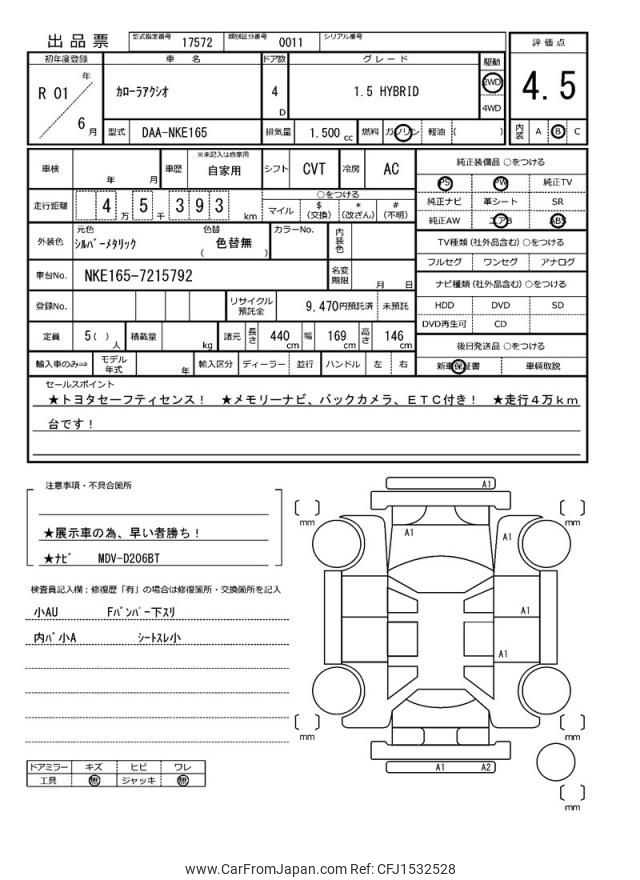 出品票 型式指定番号 17572 類別区分番号 0011 シリアル番号
評価点
4.5
内装 A B C
初年度登録 車名 ドア数 グレード 駆動
R 01 年 6 月
カローラアクシオ
4 D
1.5 HYBRID
2WD
4WD
型式 DAA-NKE165 排気量 1.500 cc 燃料 ガソリン 軽油 ( )
車検 年 月 車歴 ※未記入は自家用 自家用 シフト CVT 冷房 AC
走行距離 4 万 5 千 3 9 3 km
○をつける
マイル $(交換) *(改ざん) #(不明)
外装色 元色 シルバーメタリック 色替 ( 色替無 ) カラーNo. 内装色
車台No. NKE165-7215792 名変期限 月 日
登録No. リサイクル預託金 9.470円預託済 未預託
定員 5( )人 積載量 kg 諸元 長さ 440 cm 幅 169 cm 高さ 146 cm
輸入車のみ⇨ モデル年式 年 輸入区分 ディーラー 並行 ハンドル 左 右
純正装備品 ○をつける
PS PW 純正TV
純正ナビ 革シート SR
純正AW エアB ABS
TV種類(社外品含む) ○をつける
フルセグ ワンセグ アナログ
ナビ種類(社外品含む) ○をつける
HDD DVD SD
DVD再生可 CD
後日発送品 ○をつける
新車保証書 車輌取説
セールスポイント
★トヨタセーフティセンス! ★メモリーナビ、バックカメラ、ETC付き! ★走行4万km
台です!
注意事項・不具合箇所
★展示車の為、早い者勝ち!
★ナビ MDV-D206BT
検査員記入欄:修復歴「有」の場合は修復箇所・交換箇所を記入
小AU Fバンパー下スリ
内バ小A シートスレ小
ドアミラー キズ ヒビ ワレ
工具 無 ジャッキ 無
A1
mm
mm
A1
A1
A1
A1
mm
mm
A1 A2
mm
www.CarFromJapan.com Ref: CFJ1532528